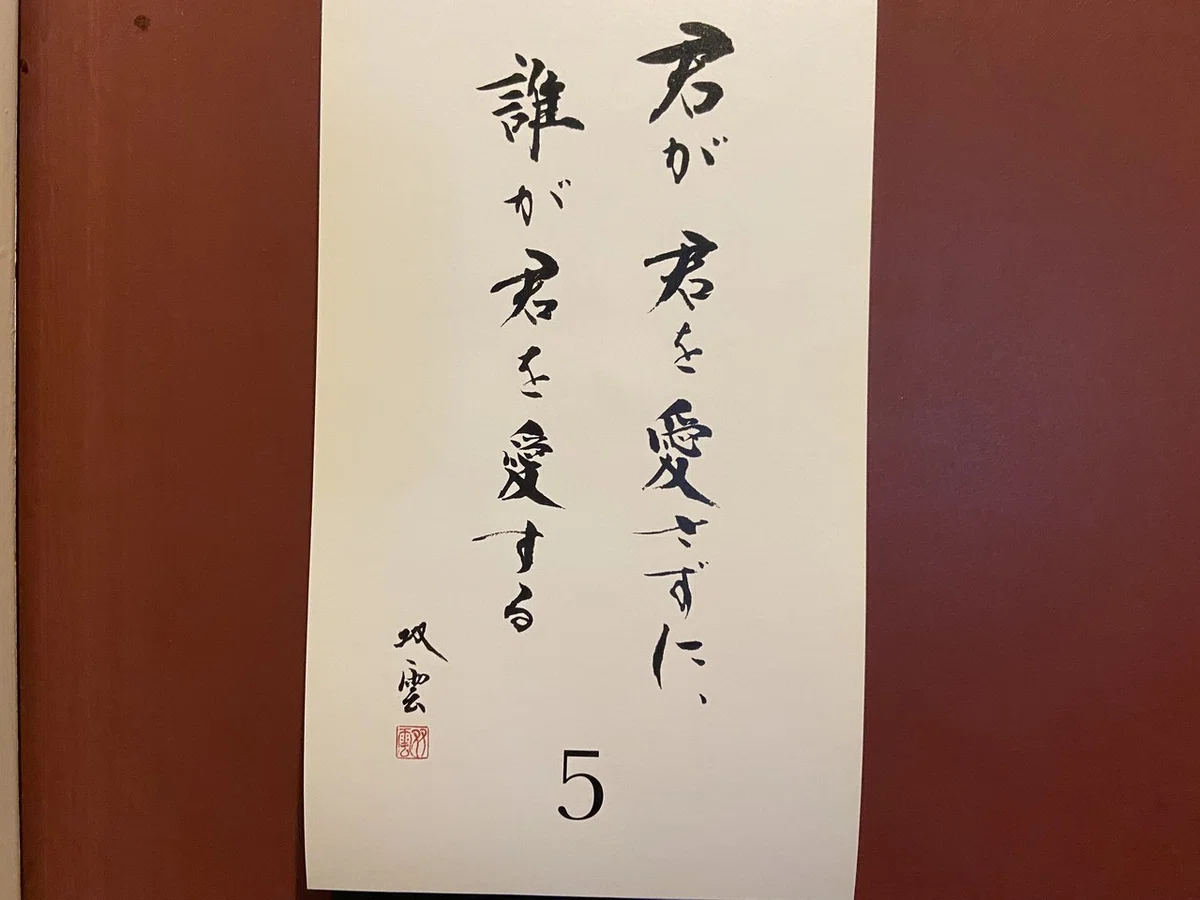 君が君を愛さずに、
誰が君を愛する
双雲
双雲
5